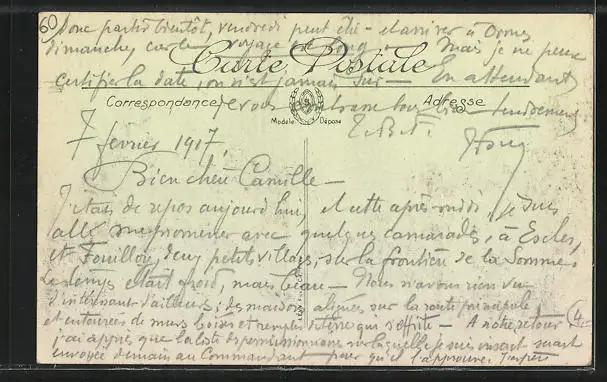 60
Donc partir bientôt, vendredi peut être - et arriver à Ornes
dimanche, car le voyage est long - Mais je ne peux
Carte Postale
certifier la date, on n'est jamais sûr - En attendant
Correspondance
je vous embrasse tous bien tendrement
Adresse
Modèle Déposé
7 février 1917,
Bien chère Camille -
J'étais de repos aujourd'hui, et cette après-midi, je suis
allé me promener avec quelques camarades, à Escles,
et Fouilloy, deux petits villages, sur la frontière de la Somme.
Le temps était froid, mais beau - Nous n'avons rien vu
d'intéressant d'ailleurs; des maisons alignées sur la route principale,
et entourées de murs, et remplis de terre qui s'effrite - A notre retour
j'ai appris que la liste des permissionnaires sur laquelle je suis inscrit serait
envoyée demain au Commandant pour qu'il l'approuve. J'espère